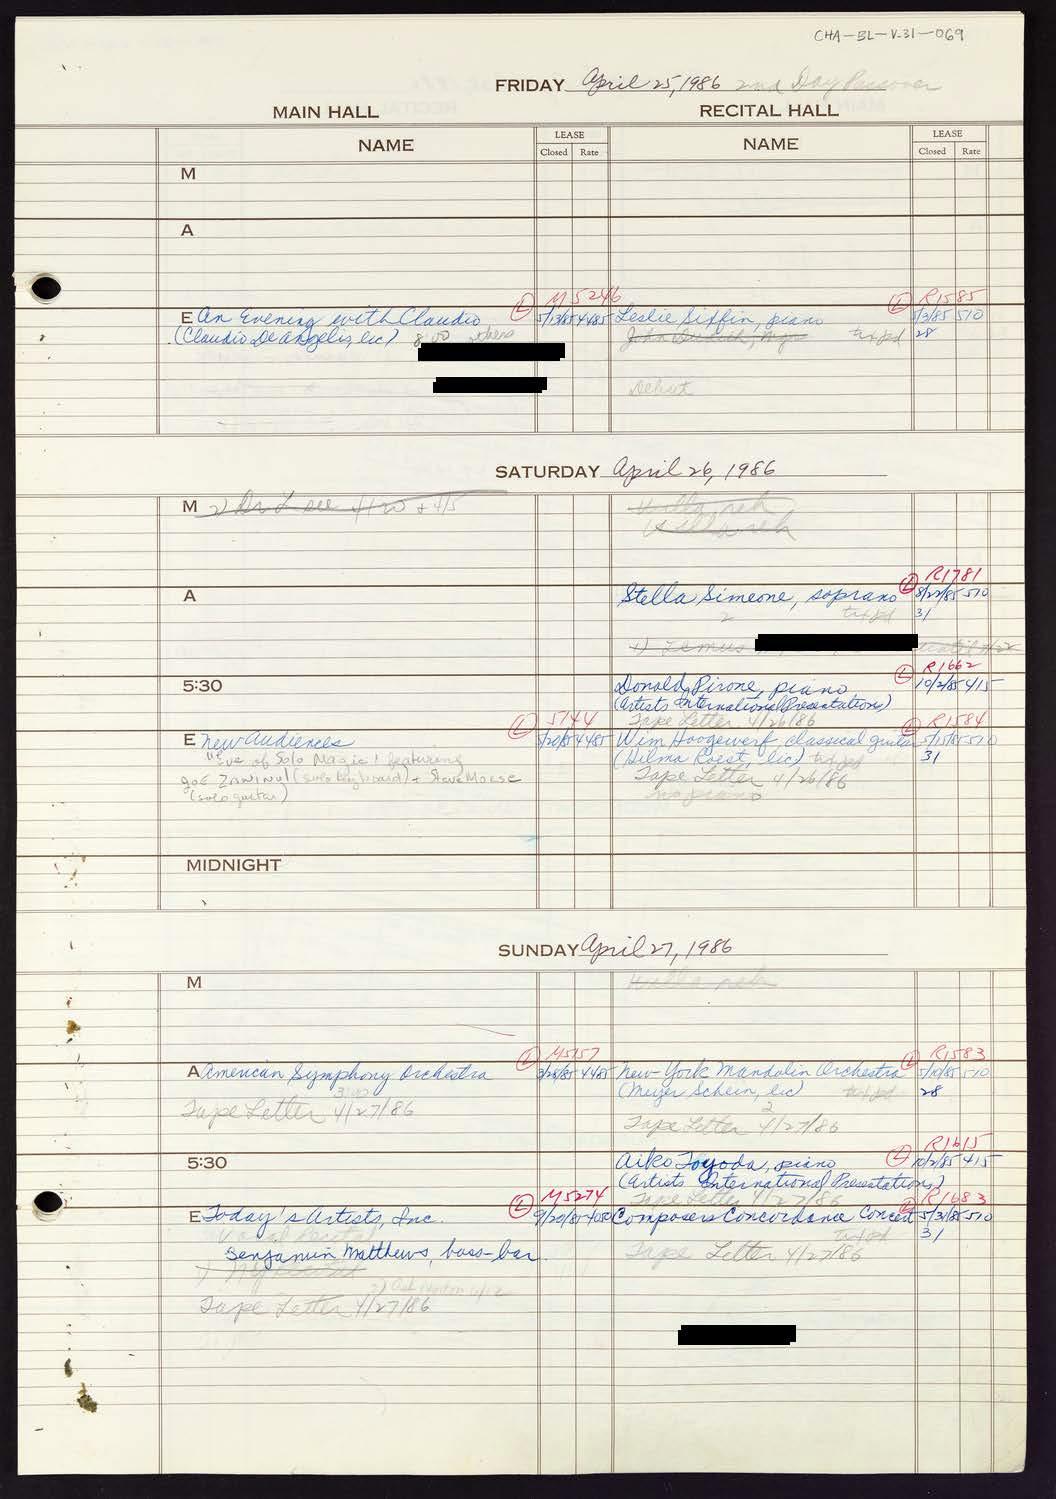 CHA-BL-V.31-069
FRIDAY April 25, 1986 2nd Day Passover
MAIN HALL RECITAL HALL
NAME LEASE NAME LEASE
Closed Rate Closed Rate
M
A
L M 5246 L R1585
E An Evening with Claudio 5/13/85 4485 Leslie Siffin, piano 5/3/85 510
(Claudio DeAngelis, lic) 8:00 others John mgr tixpd 28
Debut
SATURDAY April 26, 1986
M 2) Dr L see 4/20 + 4/5 Willa reh
Willa reh
L R1781
A Stella Simeone, soprano 8/22/85 510
2 tixpd 31
1) Lemus until
L R1662
5:30 Donald Pirone, piano 10/2/85 415
(Artists International Presentations)
L 5144 Tape Letter 4/26/86 L R1584
E New Audiences 3/20/85 4485 Wim Hoogewerf classical guitar 5/15/85 510
"Eve of Solo Magic! featuring (Hilma Roest, lic) tixpd 31
Joe Zawinul (solo keyboard) + Steve Morse Tape Letter 4/26/86
(solo guitar) no piano
MIDNIGHT
SUNDAY April 27, 1986
M Willa reh
L M5157 L R1583
A American Symphony Orchestra 3/28/85 4485 New York Mandolin Orchestra 5/10/85 510
3:00 (Meyer Schein, lic) tixpd 28
Tape Letter 4/27/86 2
Tape Letter 4/27/86
L R1615
5:30 Aiko Toyoda, piano 10/2/85 415
(Artists International Presentations)
L M5274 Tape Letter 4/27/86 L R1683
E Today's Artists, Inc. 9/20/85 4050 Composers Concordance Concert 5/31/85 510
Vocal Recital tixpd 31
Benjamin Matthews, bass-bar. Tape Letter 4/27/86
1)
2)
Tape Letter 4/27/86